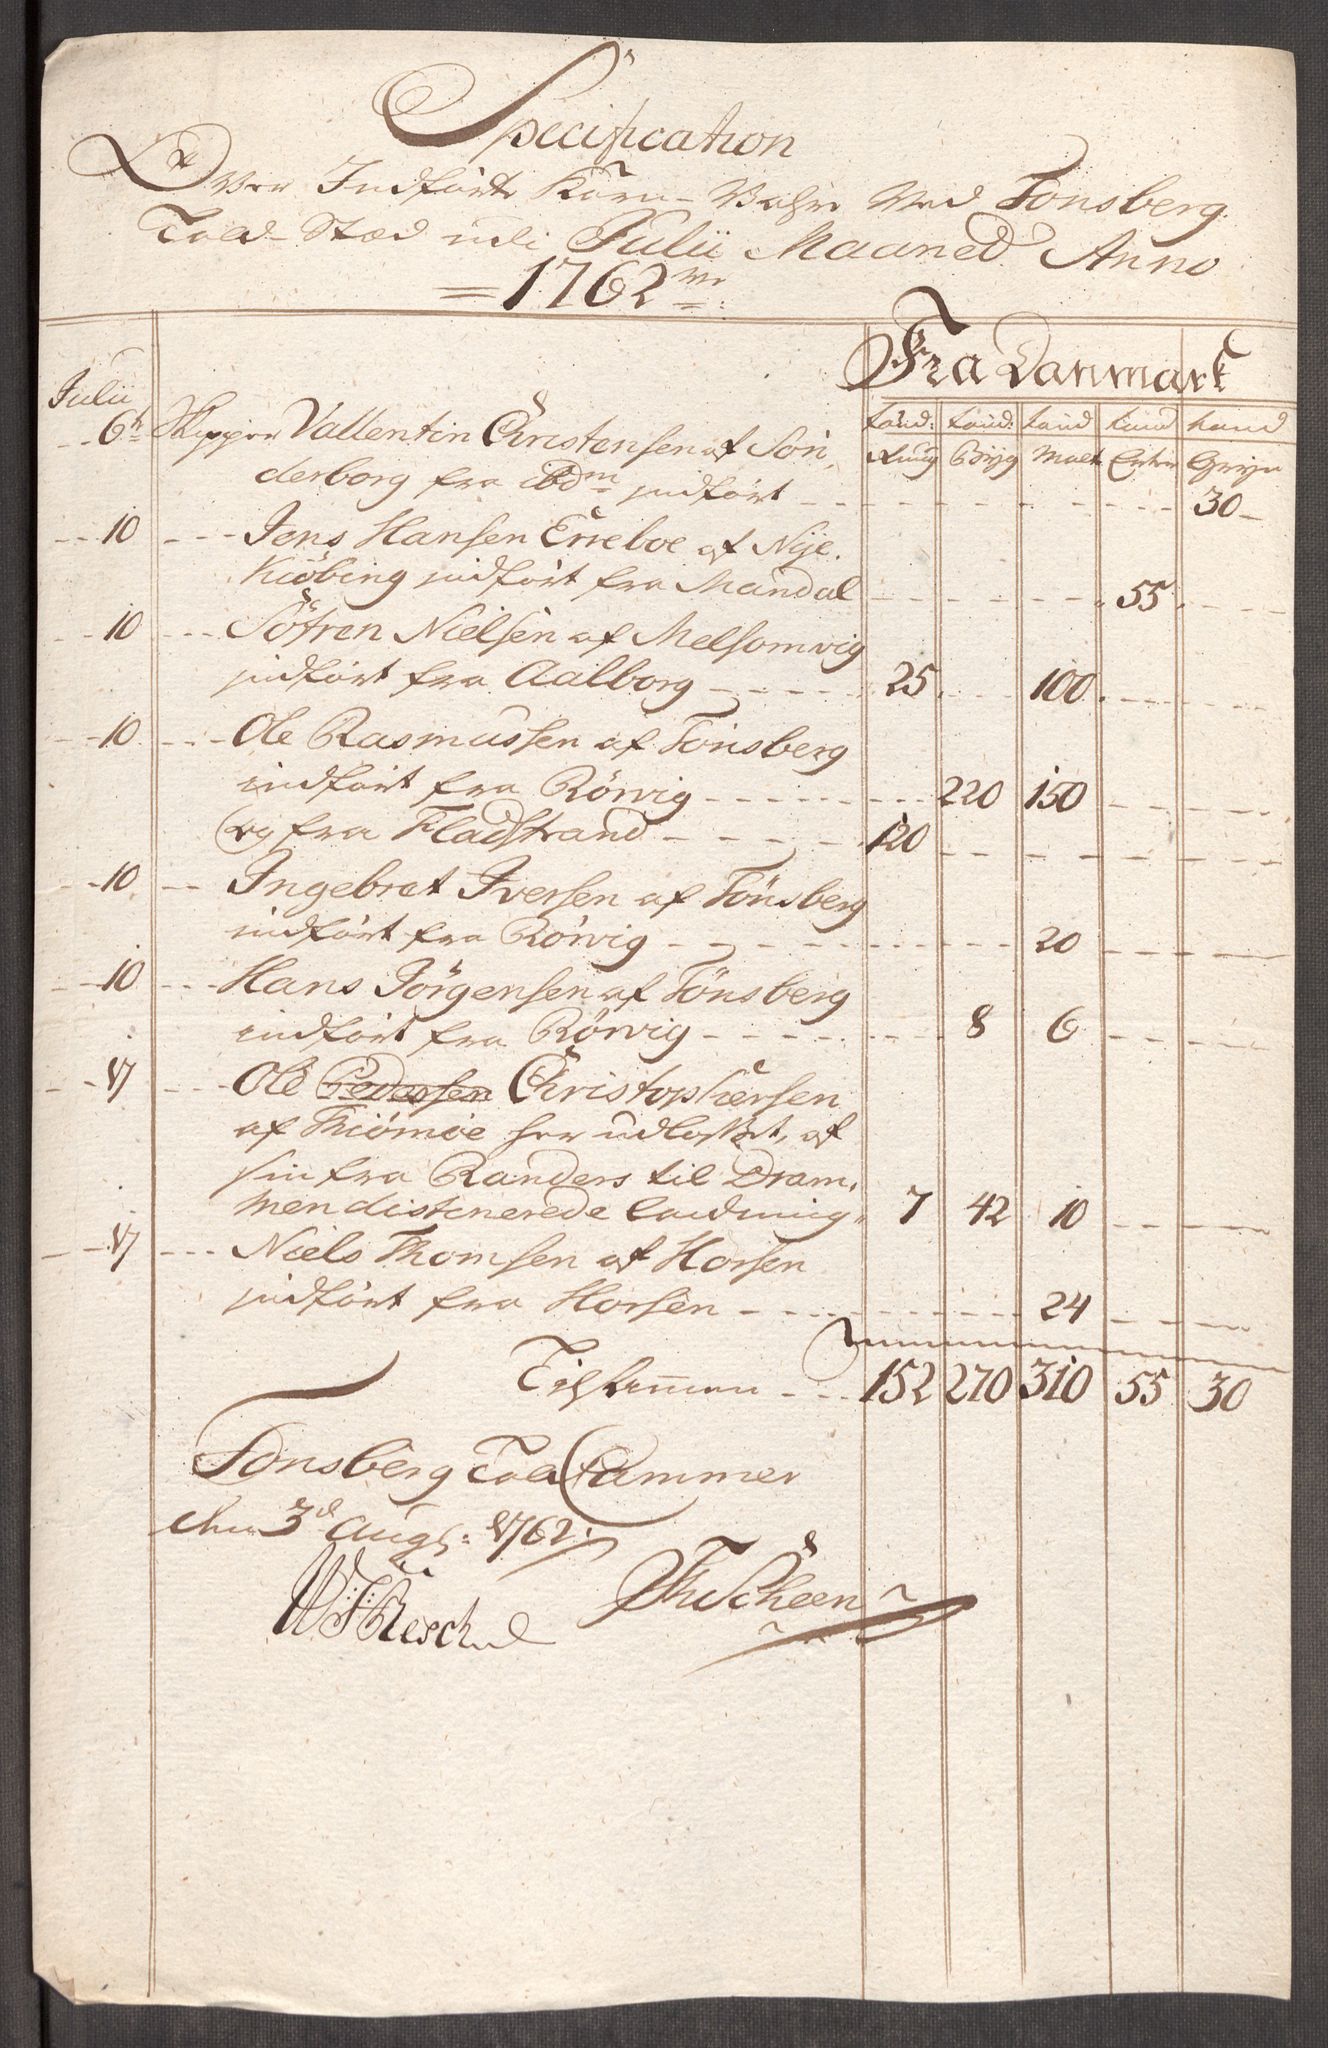 Specification
Over Indførte Korn-Vahre Ved Tonsberg
Told-Stæd udi Julii Maaned Anno
1762
Fra Danmark
Julii
Tönd: Tönd: Tönd Tönd Tönd
Rug Byg Malt Erter Gryn
6te Skipper Vallentin Christensen af Sön,
derborg fra ibdm indfört 30
10 Jens Hansen Erreboe af Nye,
Kiöbing indfört fra Mandal 55
10 Sören Nielsen af Melsomvig
indfört fra Aalborg 25 100
10 Ole Rasmussen af Tönsberg
indfört fra Rörvig 220 150
og fra Fladstrand 120
10 Ingebret Iversen af Tönsberg
indfört fra Rörvig 20
10 Hans Jörgensen af Tönsberg
indfört fra Rörvig 8 6
17 Ole Pedersen Christophersen
af Thiömöe her udlosset, af
sin fra Randers til Dram,
men distenerede Ladning 7 42 10
17 Niels Thomsen af Horsen
indfört fra Horsen 24
Tilsammen 152 270 310 55 30
Tonsberg Told Cammer
den 3d Augs: 1762